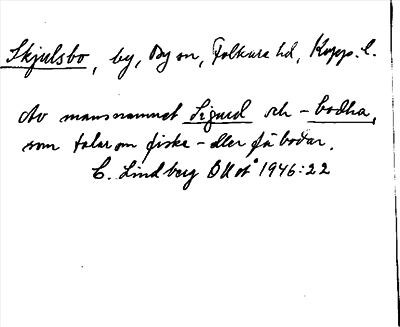 Skjulsbo, by, By sn, Folkare hd, Kopp. l.
Av mansnamnet Sigurd och -bodha,
som talar om fiske- eller fäbodar.
C. Lindberg DHoÅ 1946:22